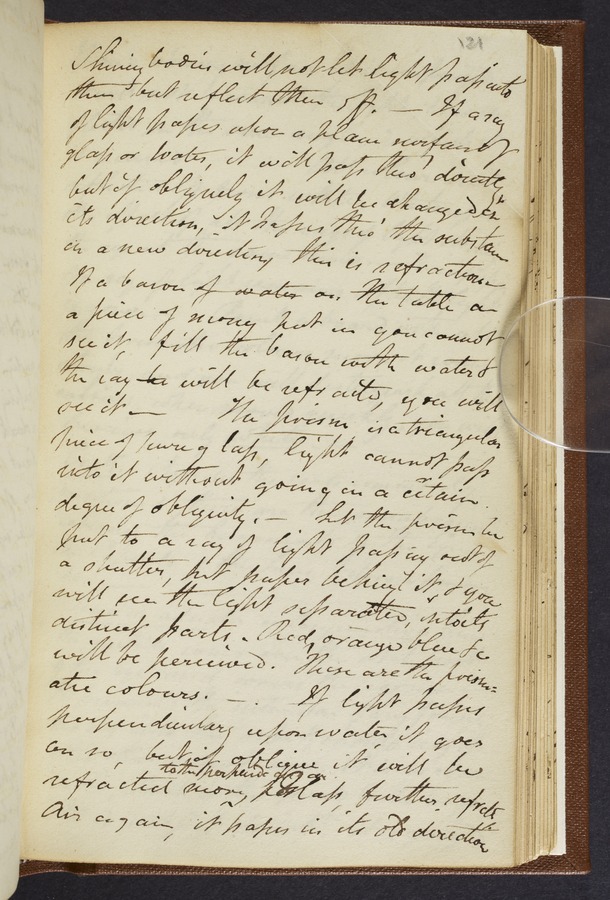 131
Shining bodies will not let light pass into
them but reflect them off. — If a ray
of light passes upon a plane surface of
glass or water, it will pass thro' directly
but if obliquely it will be changed in
its direction, it passes thro' the substance
in a new direction, this is refraction
If a bason of water on the table a
a piece of money put in you cannot
see it, fill the bason with water &
the ray will be refracted, you will
see it — The prism is a triangular
piece of pure glass, light cannot pass
into it without going in a certain
degree of obliquity. — Let the prism be
put to a ray of light passing out of
a shutter, put paper behind it & you
will see the light separated, into its
distinct parts. Red, orange blue &c
will be perceived. These are the prism=
atic colours. — . If light passes
perpendicularly upon water it goes
on so, but if oblique it will be
to the perpendicular
refracted more, glass, further refracted
Air again, it passes in its old direction